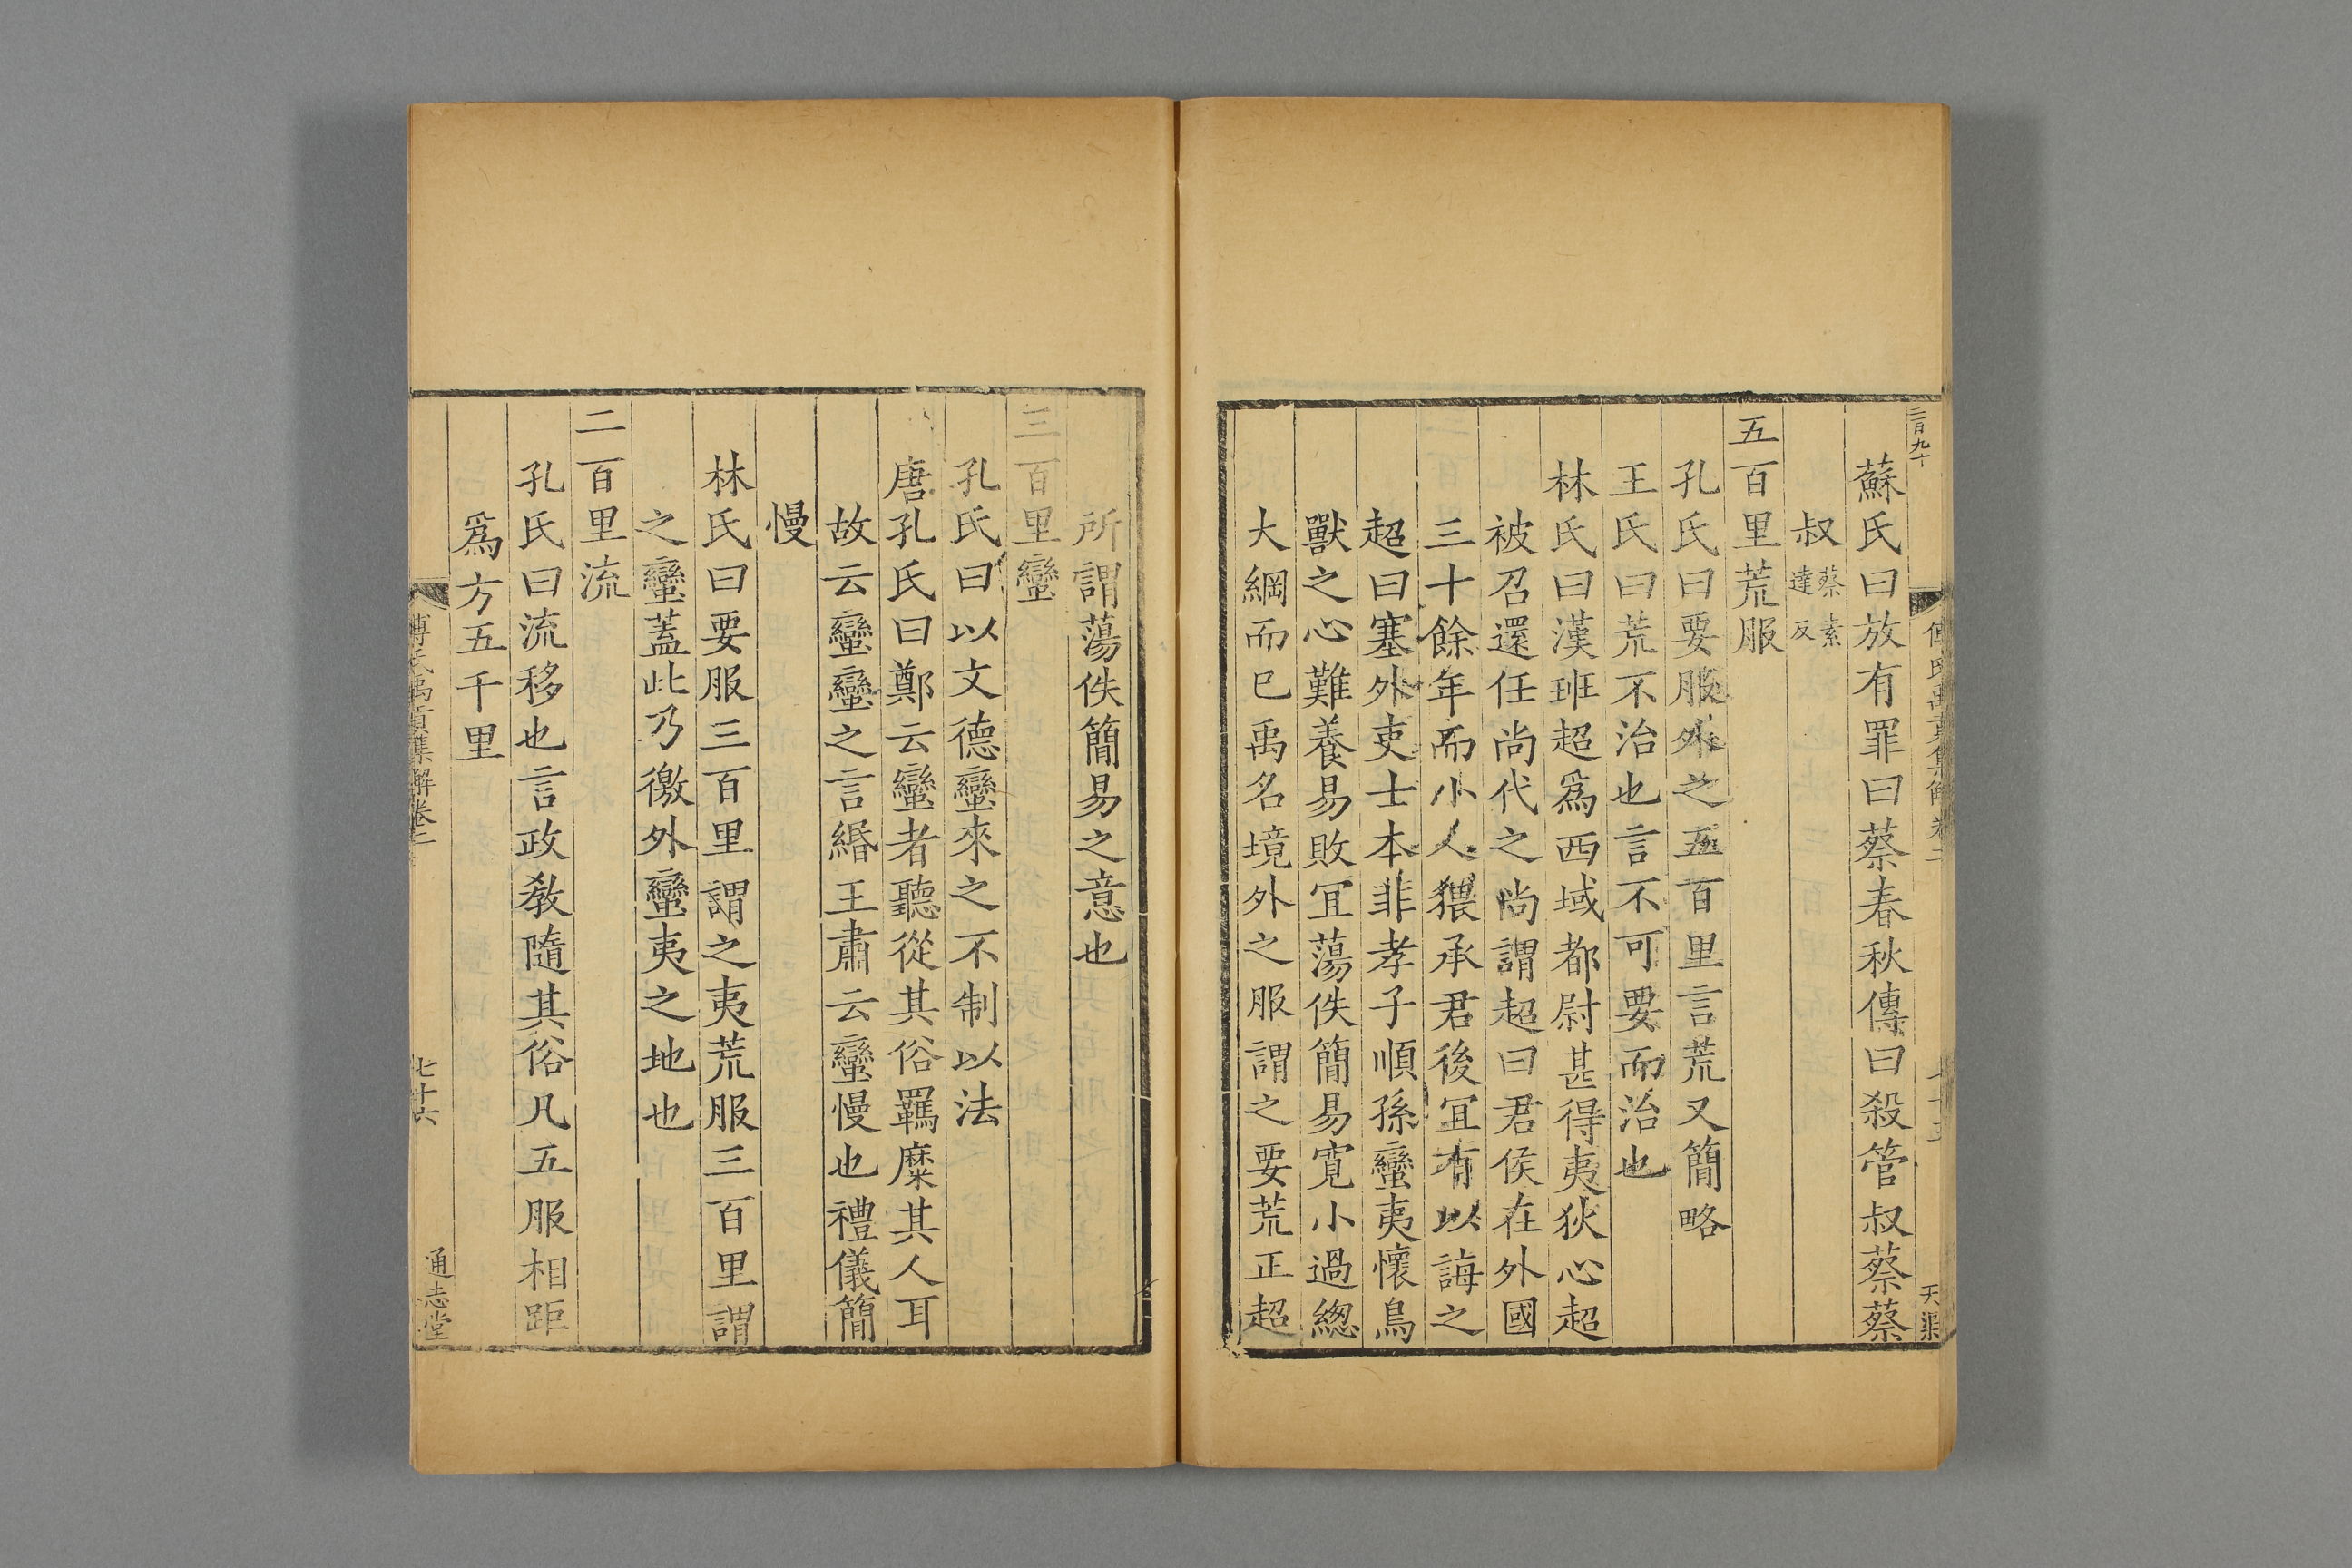 二百九十
蘇氏曰放有罪曰蔡春秋傳曰殺管叔蔡蔡
叔蔡素達反
五百里荒服
孔氏曰要服外之五百里言荒又簡略
王氏曰荒不治也言不可要而治也
林氏曰漢班超爲西域都尉甚得夷狄心超
被召還任尚代之尚謂超曰君侯在外國
三十餘年而小人猥承君後宜有以誨之
超曰塞外吏士本非孝子順孫蠻夷懷鳥
獸之心難養易敗宜蕩佚簡易寬小過緫
大綱而已禹名境外之服謂之要荒正超
傅氏禹貢集解卷二
七十五
天渠
所謂蕩佚簡易之意也
三百里蠻
孔氏曰以文德蠻來之不制以法
唐孔氏曰鄭云蠻者聽從其俗羈縻其人耳
故云蠻蠻之言緡王肅云蠻慢也禮儀簡
慢
林氏曰要服三百里謂之夷荒服三百里謂
之蠻蓋此乃徼外蠻夷之地也
二百里流
孔氏曰流移也言政教隨其俗凡五服相距
爲方五千里
傅氏禹貢集解卷二
七十六
通志堂